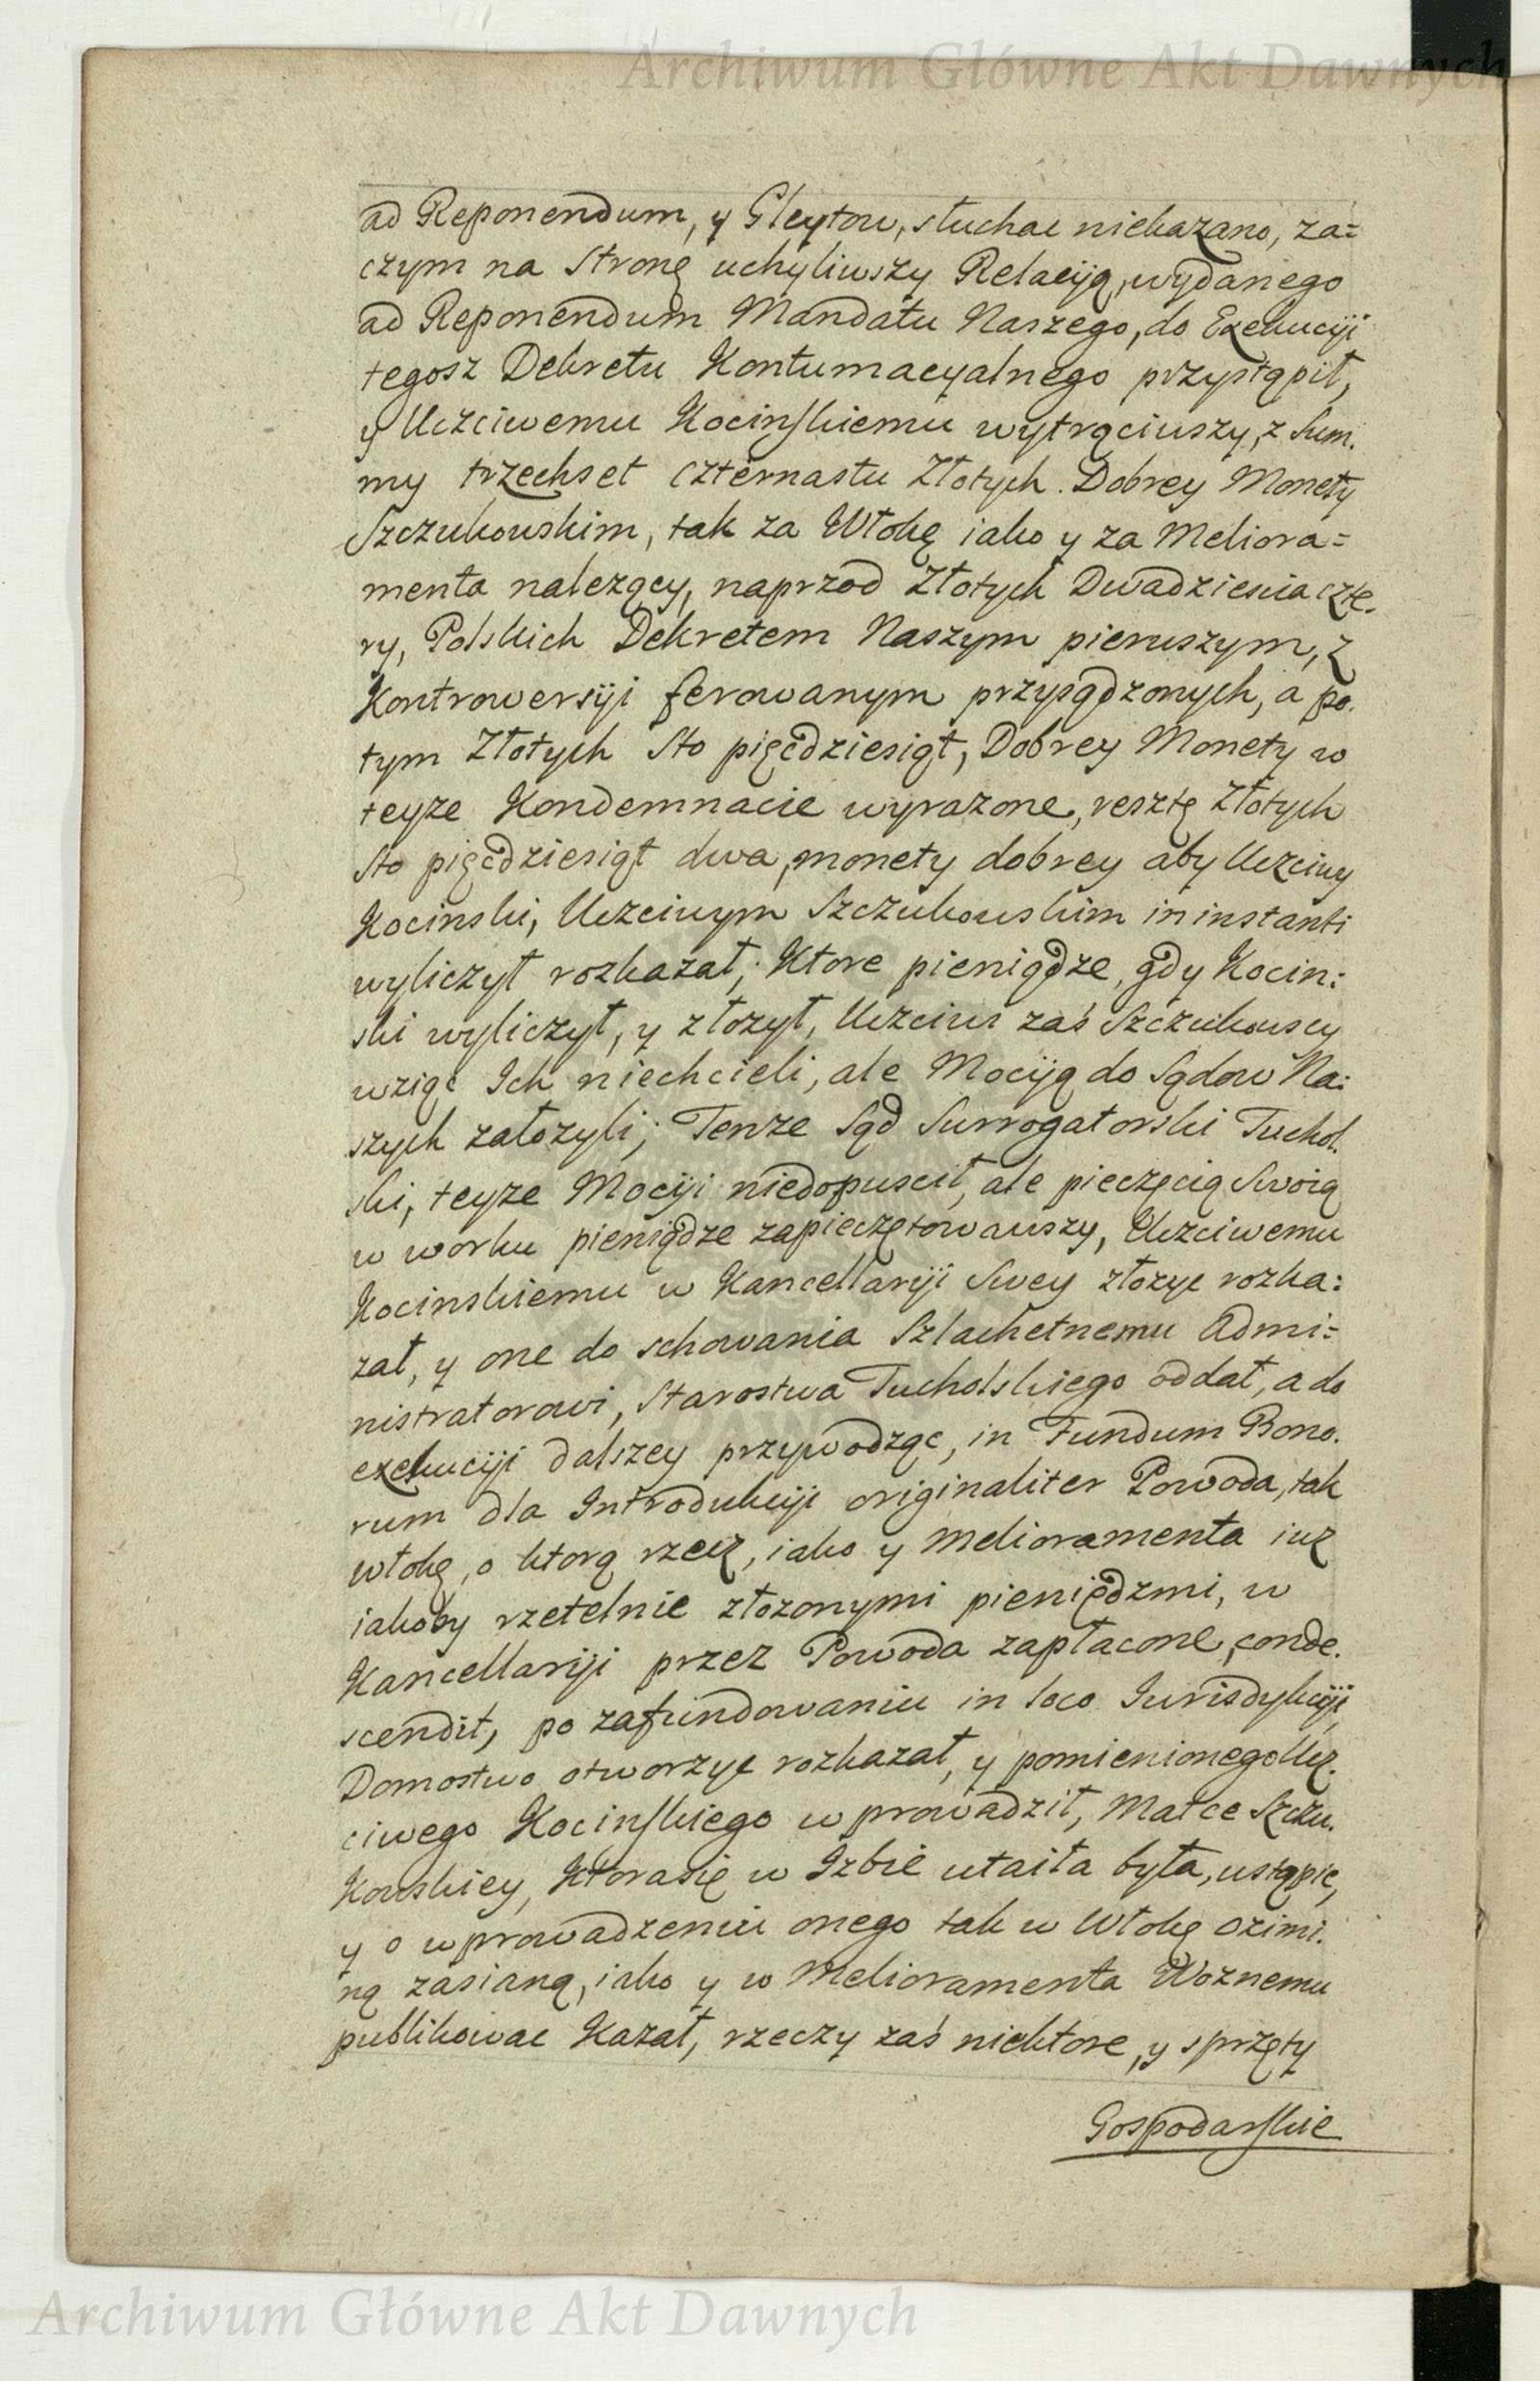 Archiwum Główne Akt Dawnych
ad Reponendum, y Gleytow, słuchac niekazano, za=
czym na Stronę uchyliwszy Relacyją, wydanego
ad Reponendum Mandatu Naszego, do Exekucyji
tegosz Dekretu Kontumacyalnego przystąpił,
y Uczciwemu Kocinskiemu wytrąciwszy, z Sum.
my trzechset czternastu Złotych Dobrey Monety
Szczukowskim, tak za Włokę iako y za Meliora=
menta nalezący, naprzod Złotych Dwadziescia czte.
ry, Polskich Dekretem Naszym pierwszym, z
Kontrowersyji ferowanym przysądzonych, a po.
tym Złotych Sto pięcdziesiąt, Dobrey Monety w
teyze Kondemnacie wyrazone, resztę Złotych
Sto pięcdziesiąt dwa, monety dobrey aby Uczciwy
Kocinski, Uczciwym Szczukowskim in instanti
wyliczył rozkazał; Ktore pieniądze, gdy Kocin:
ski wyliczył, y złozył, Uczciwi zaś Szczukowscy
wziąć Ich niechcieli, ale Mocyją do Sądow Na:
szych załozyli; Tenze Sąd Surrogatorski Tuchol.
ski, teyze Mocyji niedopuscił, ale pieczęcią Swoią
w worku pieniądze zapieczętowawszy, Uczciwemu
Kocinskiemu w Kancellaryji Swey złozyc rozka:
zał, y one do schowania Szlachetnemu Admi=
nistratorowi, Starostwa Tucholskiego oddał, a do
exekucyji dalszey przywodząc, in Fundum Bono.
rum dla Introdukcyji originaliter Powoda, tak
włokę, o ktorą rzecz, iako y Melioramenta iuz
iakoby rzetelnie złozonymi pieniędzmi, w
Kancellaryji przez Powoda zapłacone, conde.
scendit, po zafundowaniu in loco Iurisdykcyji,
Domostwo otworzyc rozkazał, y pomienionego Ucz.
ciwego Kocinskiego wprowadził, Matce Szczu.
Kowskiey, Ktorasię w Izbie utaiła była, ustąpic,
y o wprowadzeniu onego tak w Włokę ozimi.
ną zasianą, iako y w Melioramenta Woznemu
publikowac Kazał, rzeczy zaś niektore, y sprzęty
Gospodarskie
Archiwum Główne Akt Dawnych